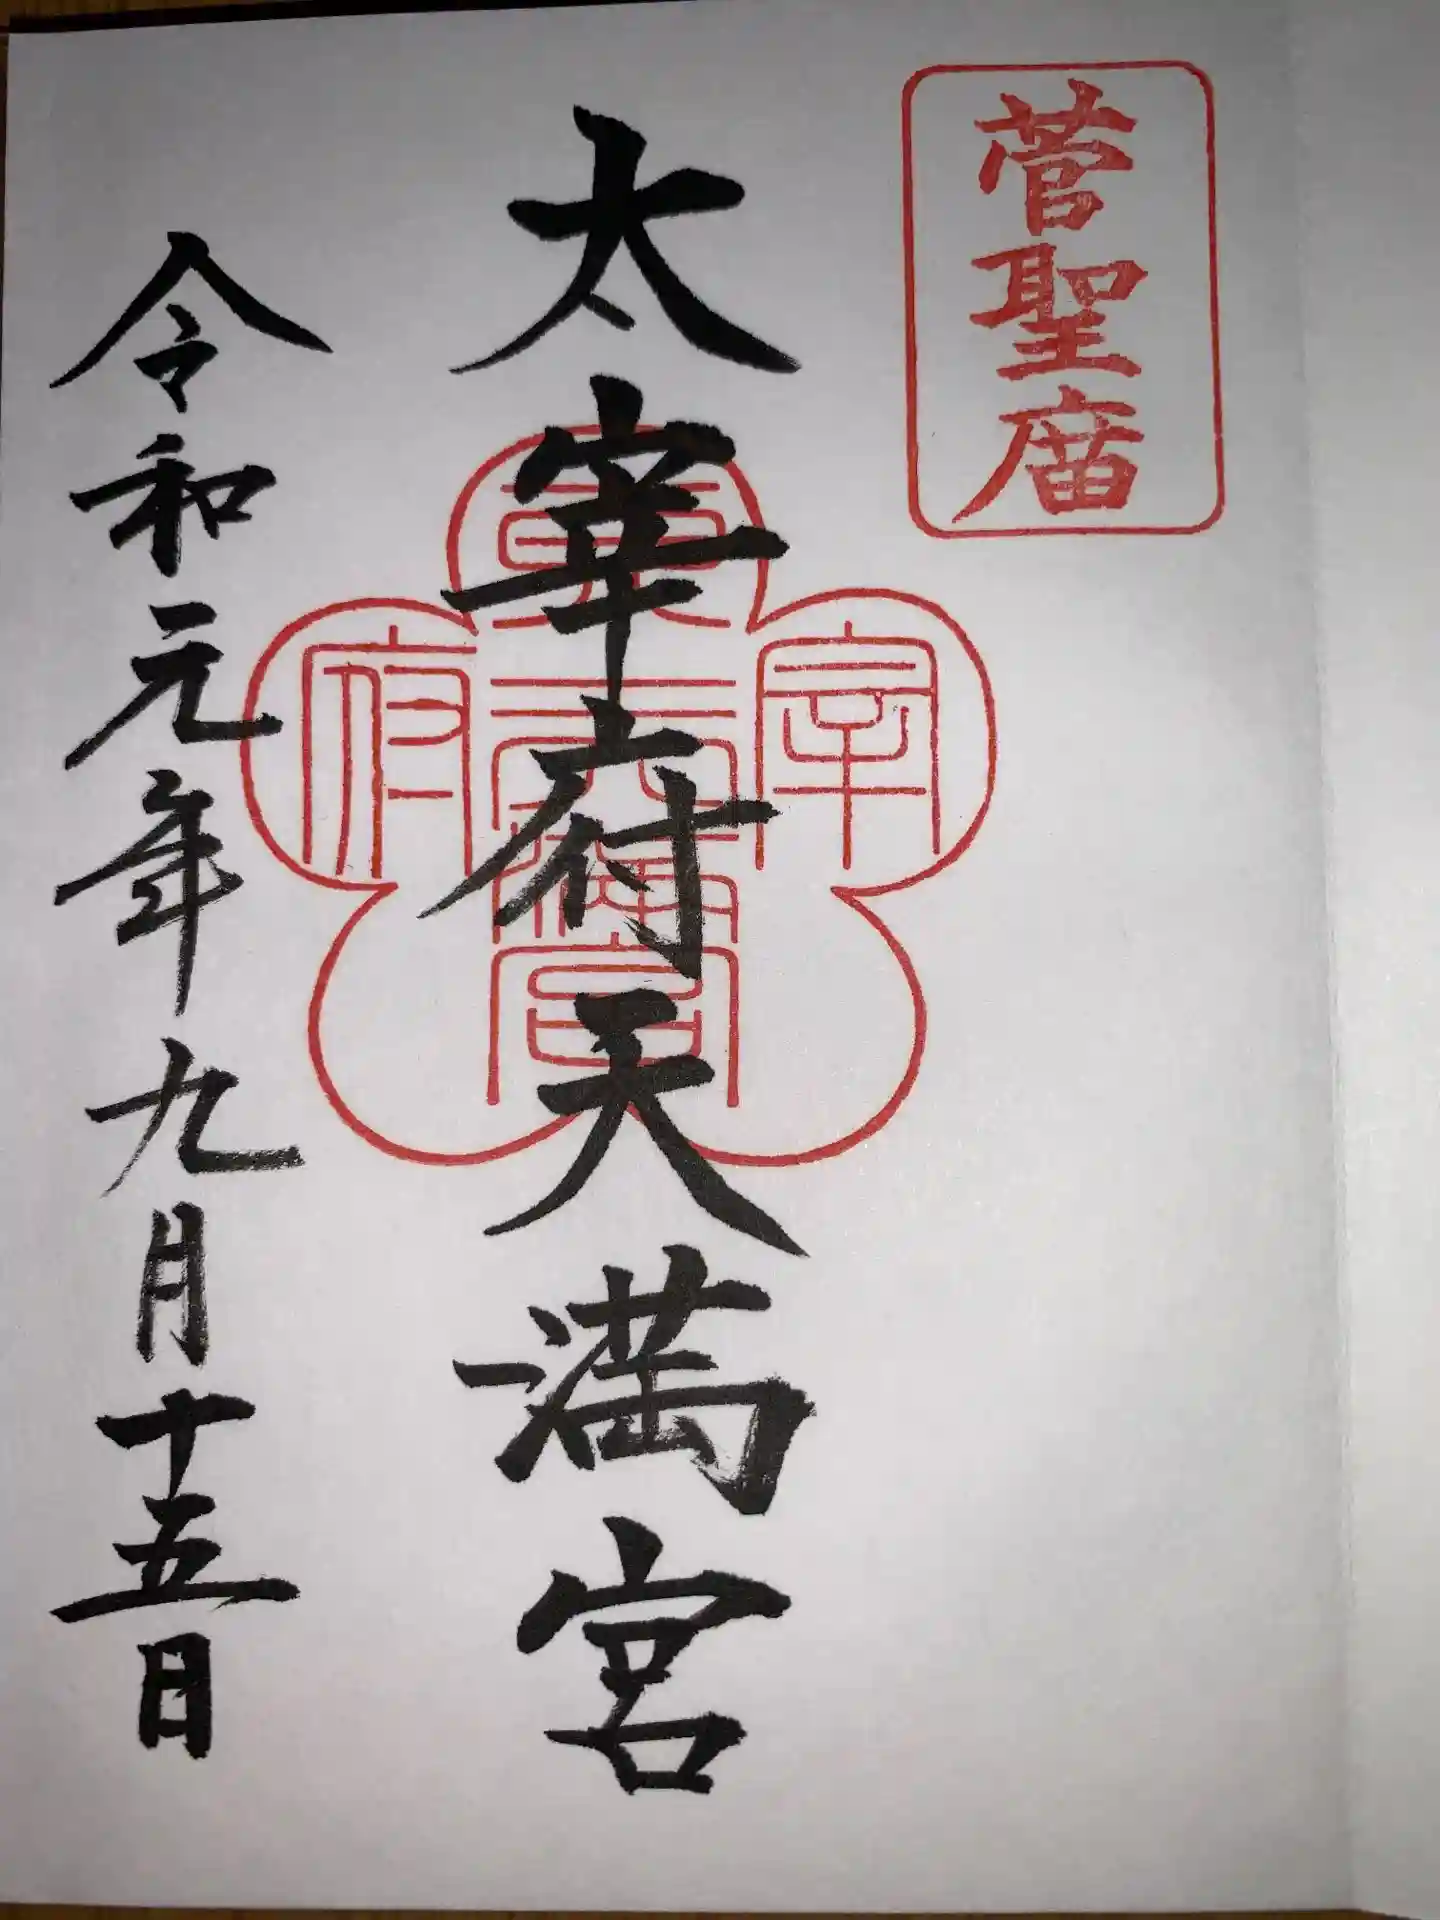 菅聖庿
太宰府天満宮
令和元年九月十五日
宰
府